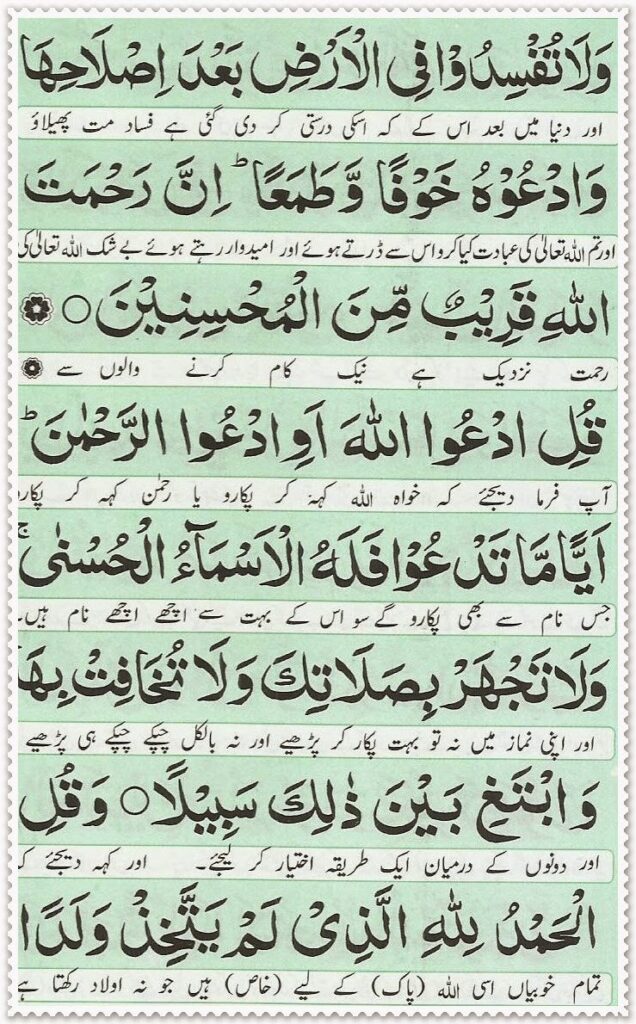 وَلَا تُفْسِدُوْا فِی الْاَرْضِ بَعْدَ اِصْلَاحِهَا
اور دنیا میں بعد اس کے کہ اسکی درستی کر دی گئی ہے فساد مت پھیلاؤ
وَادْعُوْهُ خَوْفًا وَّطَمَعًا ؕ اِنَّ رَحْمَتَ
اور تم اللہ تعالیٰ کی عبادت کیا کرو اس سے ڈرتے ہوئے اور امیدوار رہتے ہوئے بے شک اللہ تعالیٰ کی
اللهِ قَرِیْبٌ مِّنَ الْمُحْسِنِیْنَ ○
رحمت نزدیک ہے نیک کام کرنے والوں سے
قُلِ ادْعُوا اللهَ اَوِ ادْعُوا الرَّحْمٰنَ ؕ
آپ فرما دیجئے کہ خواہ اللہ کہہ کر پکارو یا رحمٰن کہہ کر پکارو
اَیًّا مَّا تَدْعُوْا فَلَهُ الْاَسْمَآءُ الْحُسْنٰی ۚ
جس نام سے بھی پکارو گے سو اس کے بہت سے اچھے اچھے نام ہیں۔
وَلَا تَجْهَرْ بِصَلَاتِكَ وَلَا تُخَافِتْ بِهَا
اور اپنی نماز میں نہ تو بہت پکار کر پڑھیے اور نہ بالکل چپکے چپکے ہی پڑھیے
وَابْتَغِ بَیْنَ ذٰلِكَ سَبِیْلًا ○ وَقُلِ
اور دونوں کے درمیان ایک طریقہ اختیار کر لیجئے۔ اور کہہ دیجئے
الْحَمْدُ لِلّٰهِ الَّذِیْ لَمْ یَتَّخِذْ وَلَدًا
تمام خوبیاں اسی اللہ (پاک) کے لیے (خاص) ہیں جو نہ اولاد رکھتا ہے